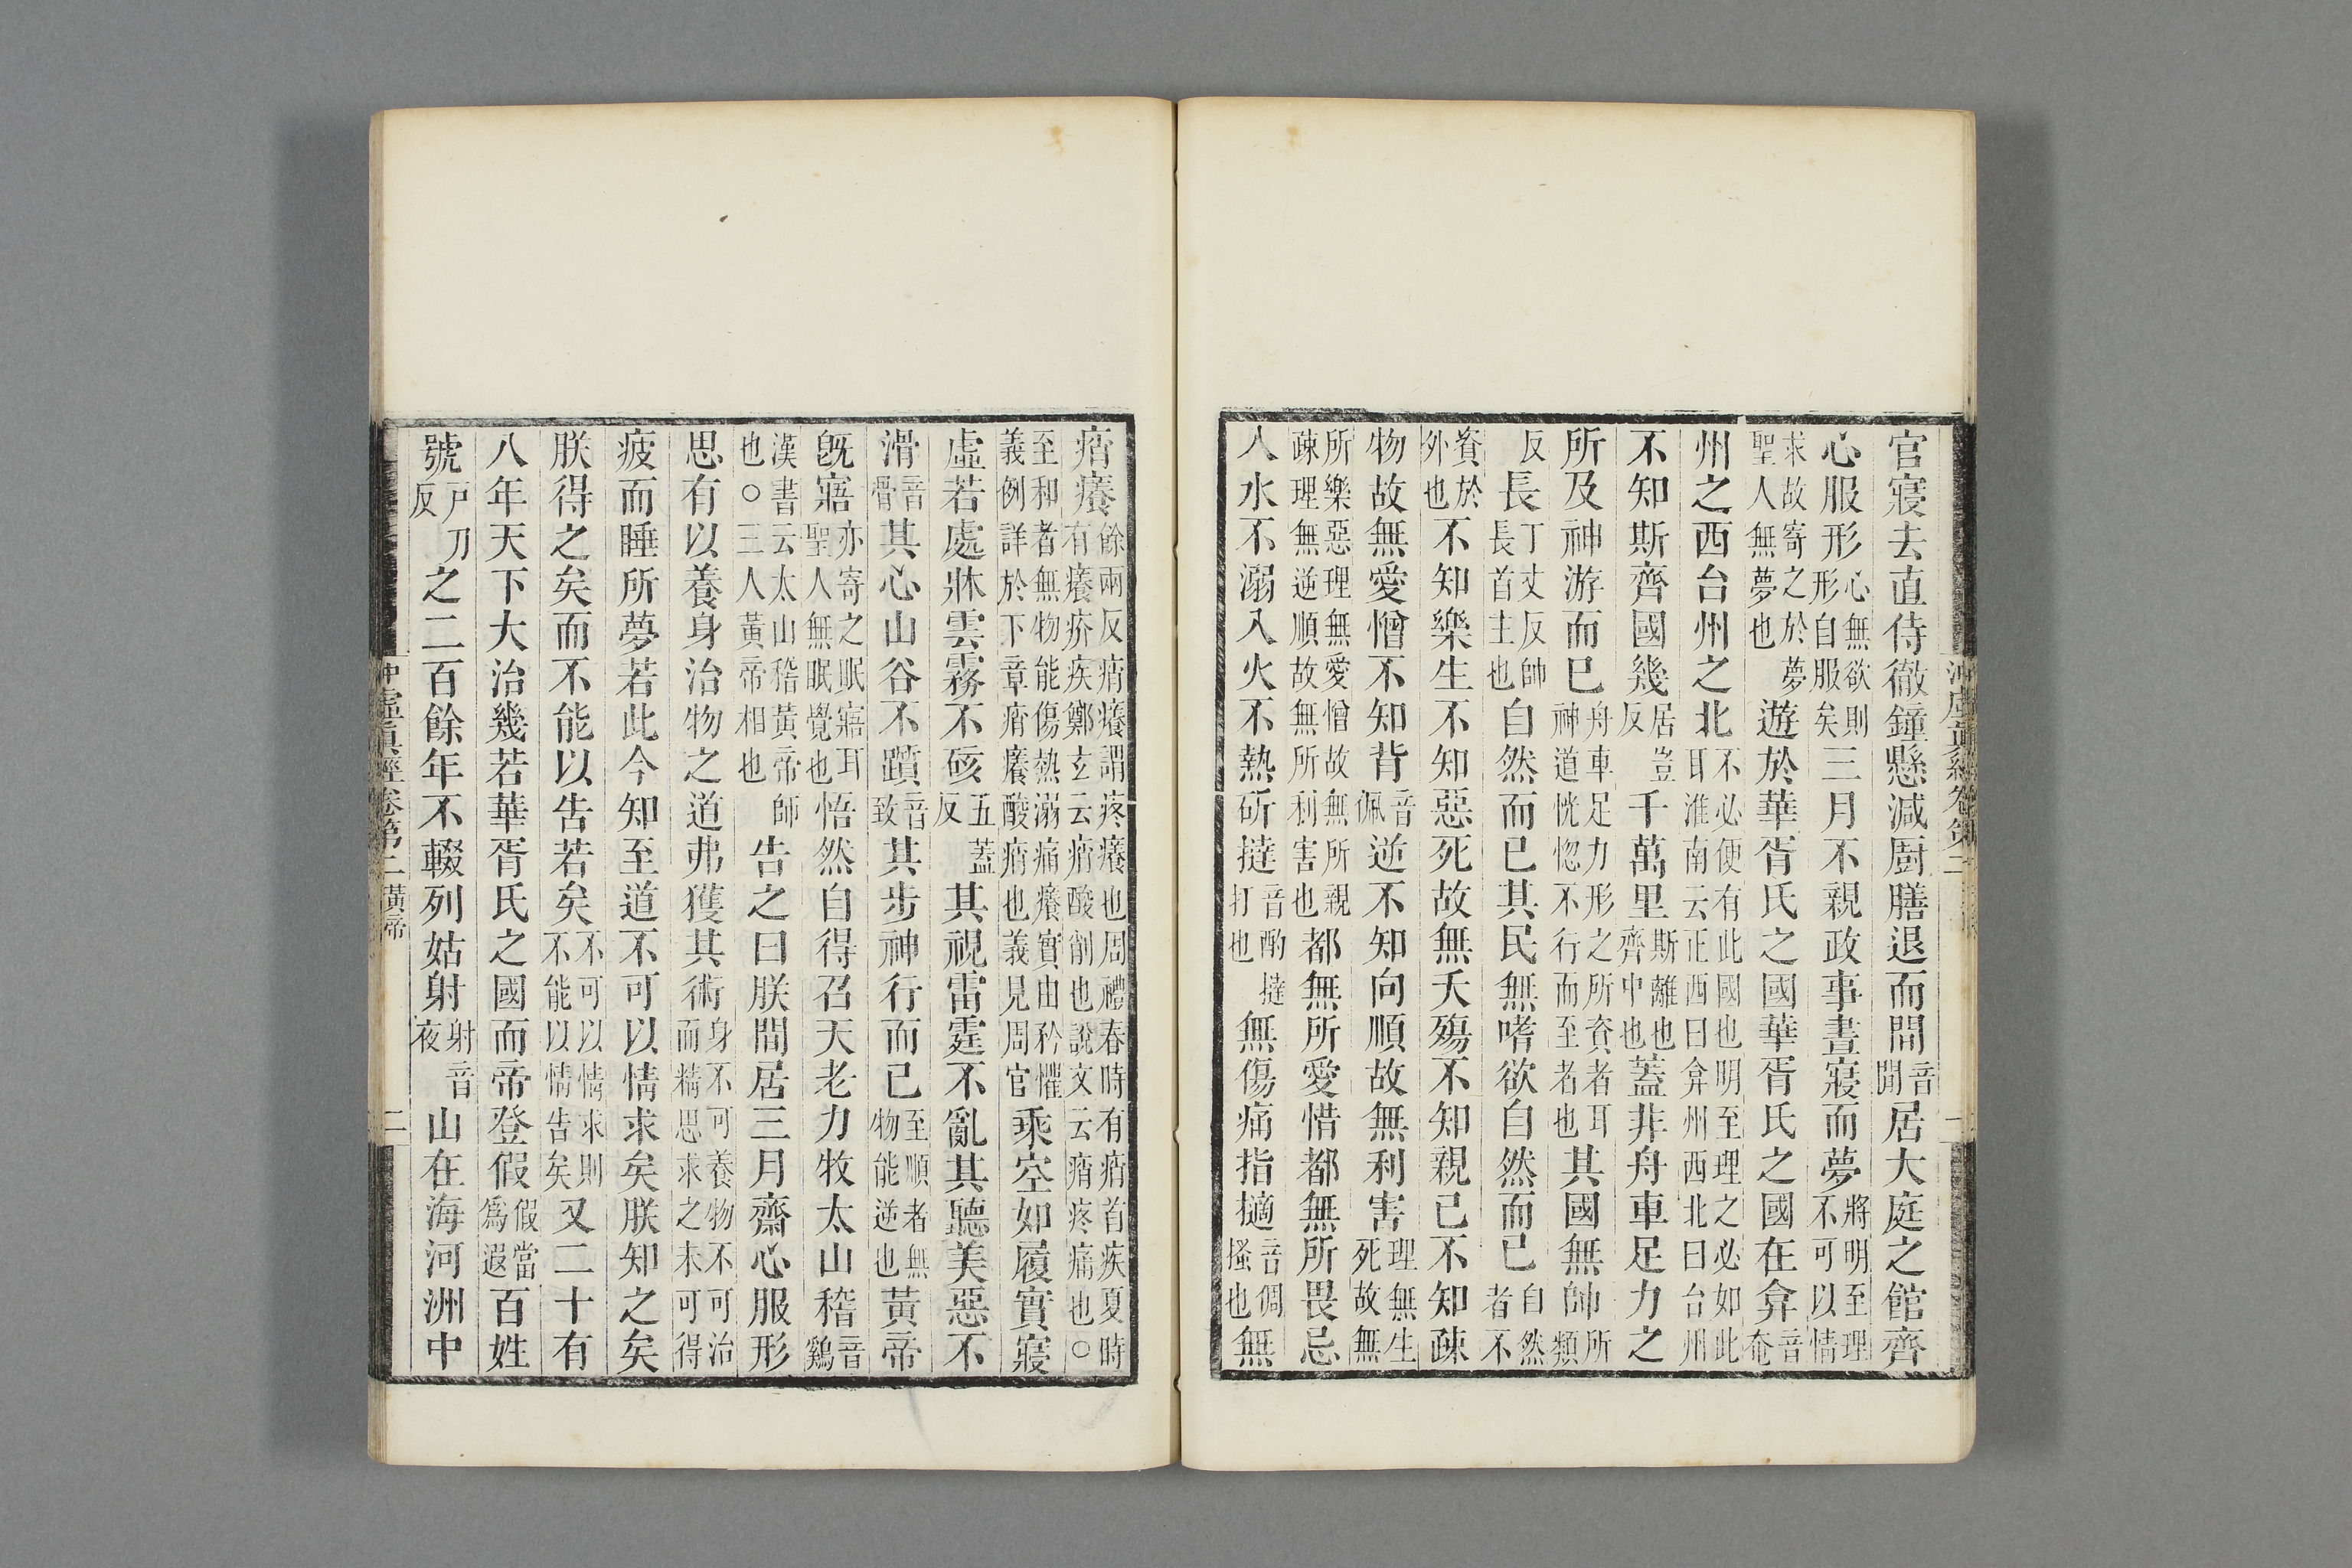 官寢去直侍徹鐘懸減廚膳退而間音閒居大庭之館齊
心服形心無欲則形自服矣三月不親政事晝寢而夢將明至理不可以情
求故寄之於夢聖人無夢也遊於華胥氏之國華胥氏之國在弇音奄
州之西台州之北不必便有此國也明至理之必如此耳淮南云正西曰弇州西北曰台州
不知斯齊國幾居豈反千萬里斯離也齊中也蓋非舟車足力之
所及神游而已舟車足力形之所資者耳神道恍惚不行而至者也其國無帥所類
反長丁丈反帥長首主也自然而已其民無嗜欲自然而已自然者不
資於外也不知樂生不知惡死故無夭殤不知親己不知疎
物故無愛憎不知背音佩逆不知向順故無利害理無生死故無
所樂惡理無愛憎故無所親疎理無逆順故無所利害也都無所愛惜都無所畏忌
入水不溺入火不熱斫撻音酌撻打也無傷痛指擿音倜搔也無
痟癢餘兩反痟癢謂疼癢也周禮春時有痟首疾夏時有癢疥疾鄭玄云痟酸削也說文云痟疼痛也○
至和者無物能傷熱溺痛癢實由矜懼義例詳於下章痟癢酸痟也義見周官乘空如履實寢
虛若處牀雲霧不硋五蓋反其視雷霆不亂其聽美惡不
滑音骨其心山谷不躓音致其步神行而已至順者無物能逆也黃帝
旣寤亦寄之眠寤耳聖人無眠覺也悟然自得召天老力牧太山稽音雞
漢書云太山稽黃帝師也○三人黃帝相也告之曰朕閒居三月齋心服形
思有以養身治物之道弗獲其術身不可養物不可治而精思求之未可得
疲而睡所夢若此今知至道不可以情求矣朕知之矣
朕得之矣而不能以告若矣不可以情求則不能以情告矣又二十有
八年天下大治幾若華胥氏之國而帝登假假當爲遐百姓
號戸刀反之二百餘年不輟列姑射射音夜山在海河洲中
沖虛眞經卷第二黃帝
二